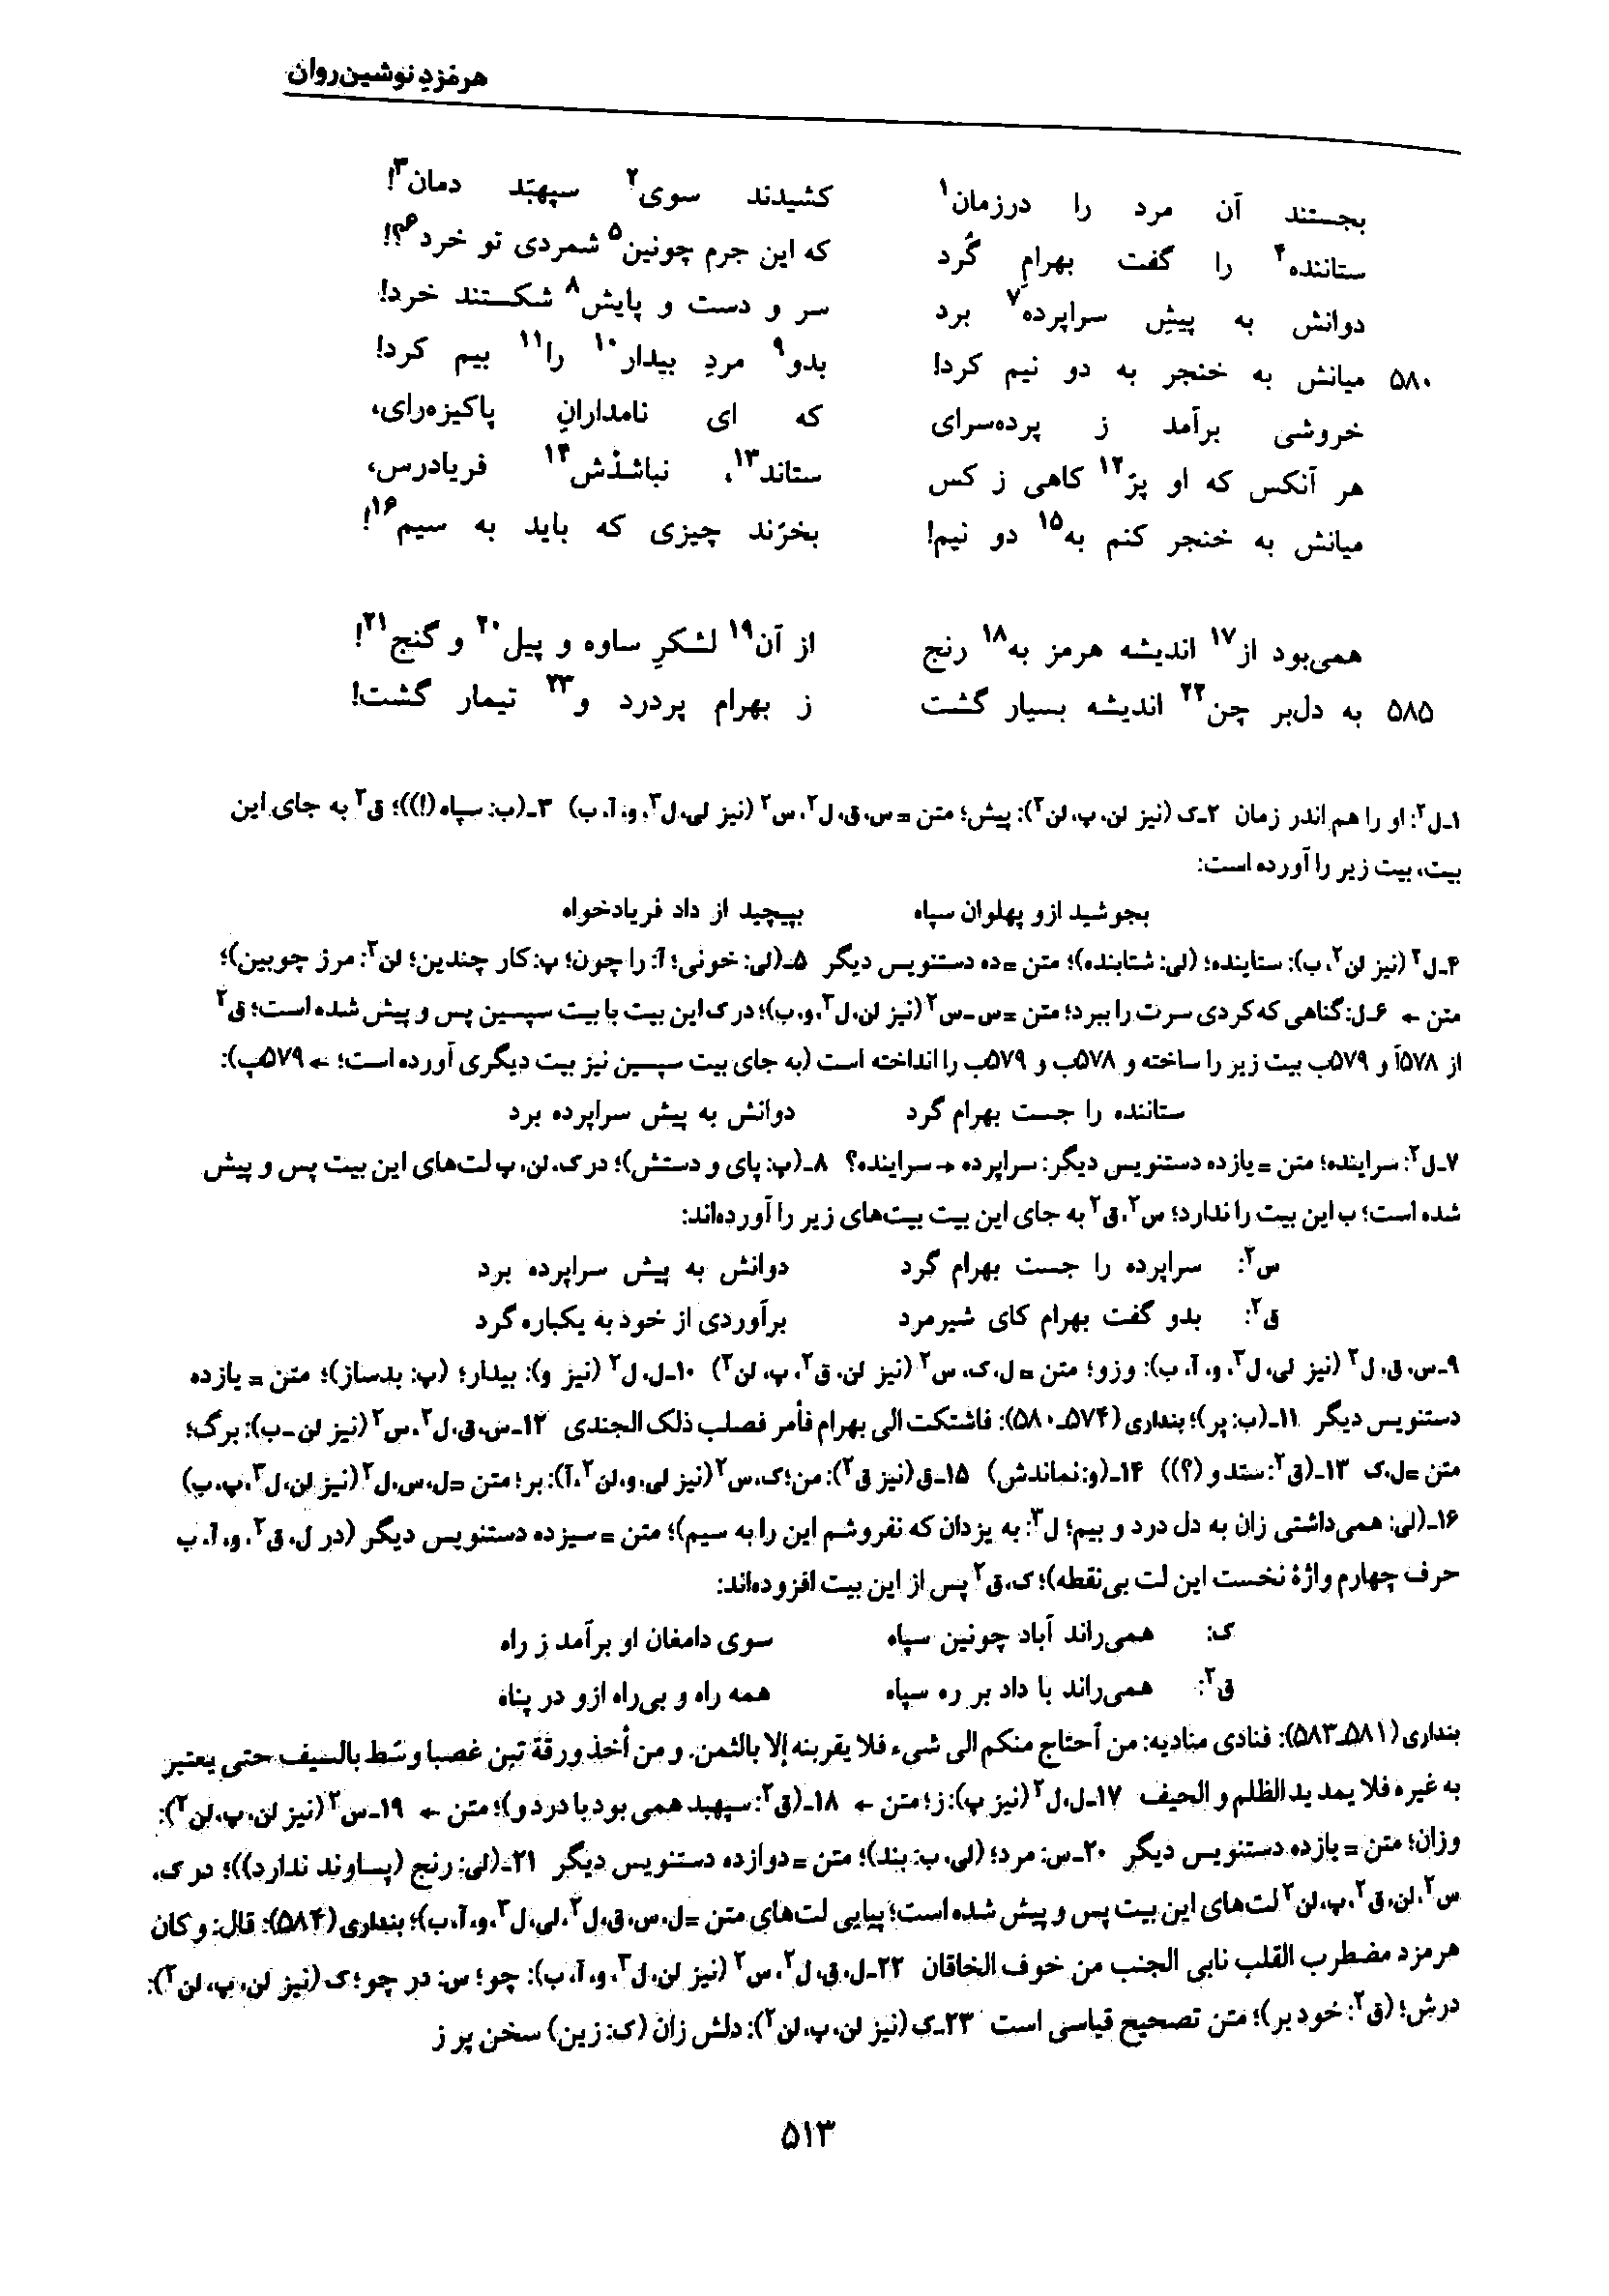 هرمزدِ نوشین‌روان
بجستند آن مرد را درزمان۱ کشیدند سوی۲ سپهبَد دمان۳!
ستاننده۴ را گفت بهرامِ گُرد که این جرم چونین۵ شمردی تو خرد۶؟!
دوانش به پیشِ سراپرده۷ برد سر و دست و پایش۸ شکستند خرد!
۵۸۰ میانش به خنجر به دو نیم کرد! بدو۹ مردِ بیدار۱۰ را۱۱ بیم کرد!
خروشی برآمد ز پرده‌سرای که ای نامدارانِ پاکیزه‌رای،
هر آنکس که او پرّ۱۲ کاهی ز کس ستاند۱۳، نباشَدْش۱۴ فریادرس،
میانش به خنجر کنم به۱۵ دو نیم! بخرّند چیزی که باید به سیم۱۶!
همی‌بود از۱۷ اندیشه هرمز به۱۸ رنج از آن۱۹ لشکرِ ساوه و پیل۲۰ و گنج۲۱!
۵۸۵ به دل‌بر چن۲۲ اندیشه بسیار گشت ز بهرام پردرد و۲۳ تیمار گشت!
۱ـ ل۲: او را هم اندر زمان ۲ـ ک (نیز لن، پ، لن۲): پیش؛ متن = س، ق، ل۲، س۲ (نیز لی، ل۳، و، آ، ب) ۳ـ (ب: سپاه (!))؛ ق۲ به جای این
بیت، بیت زیر را آورده است:
بجوشید ازو پهلوان سپاه بپیچید از داد فریادخواه
۴ـ ل۲ (نیز لن۲، ب): ستاینده؛ (لی: شتابنده)؛ متن = ده دستنویس دیگر ۵ـ (لی: خونی؛ آ: را چون؛ پ: کار چندین؛ لن۲: مرز چوبین)؛
متن ← ۶ـ ل: گناهی که کردی سرت را ببرد؛ متن = س ـ س۲ (نیز لن، ل۳، و، ب)؛ در ک این بیت با بیت سپسین پس و پیش شده است؛ ق۲
از ۵۷۸آ و ۵۷۹ب بیت زیر را ساخته و ۵۷۸ب و ۵۷۹ب را انداخته است (به جای بیت سپسین نیز بیت دیگری آورده است؛ ← ۵۷۹پ):
ستاننده را جست بهرام گرد دوانش به پیش سراپرده برد
۷ـ ل۲: سراینده؛ متن = یازده دستنویس دیگر: سراپرده → سراینده؟ ۸ـ (پ: پای و دستش)؛ در ک، لن، پ لت‌های این بیت پس و پیش
شده است؛ ب این بیت را ندارد؛ س۲، ق۲ به جای این بیت بیت‌های زیر را آورده‌اند:
س۲: سراپرده را جست بهرام گرد دوانش به پیش سراپرده برد
ق۲: بدو گفت بهرام کای شیرمرد برآوردی از خود به یکباره گرد
۹ـ س، ق، ل۲ (نیز لی، ل۳، و، آ، ب): وزو؛ متن = ل، ک، س۲ (نیز لن، ق۲، پ، لن۲) ۱۰ـ ل، ل۲ (نیز و): بیدار؛ (پ: بدساز)؛ متن = یازده
دستنویس دیگر ۱۱ـ (ب: پر)؛ بنداری (۵۷۴ـ۵۸۰): فاشتکت الی بهرام فأمر فصلب ذلک الجندی ۱۲ـ س، ق، ل۲، س۲ (نیز لن ـ ب): برگ؛
متن = ل، ک ۱۳ـ (ق۲: ستد و (؟)) ۱۴ـ (و: نماندش) ۱۵ـ ق (نیز ق۲): من؛ ک، س۲ (نیز لی، و، لن۲، آ): بر؛ متن = ل، س، ل۲ (نیز لن، ل۳، پ، ب)
۱۶ـ (لی: همی‌داشتی زان به دل درد و بیم؛ ل۳: به یزدان که نفروشم این را به سیم)؛ متن = سیزده دستنویس دیگر (در ل، ق۲، و، آ، ب
حرف چهارم واژهٔ نخست این لت بی‌نقطه)؛ ک، ق۲ پس از این بیت افزوده‌اند:
ک: همی‌راند آباد چونین سپاه سوی دامغان او برآمد ز راه
ق۲: همی‌راند با داد بر ره سپاه همه راه و بی‌راه ازو در پناه
بنداری (۵۸۱ـ۵۸۳): فنادی منادیه: من آحتاج منکم الی شیء فلا یقربنه إلا بالثمن. و من أخذ ورقة تبن غصبا وسّط بالسیف حتی یعتبر
به غیره فلا یمد ید الظلم و الحیف ۱۷ـ ل، ل۲ (نیز پ): ز؛ متن ← ۱۸ـ (ق۲: سپهبد همی بود با درد و)؛ متن ← ۱۹ـ س۲ (نیز لن، پ، لن۲):
وزان؛ متن = یازده دستنویس دیگر ۲۰ـ س: مرد؛ (لی، ب: بند)؛ متن = دوازده دستنویس دیگر ۲۱ـ (لی: رنج (پساوند ندارد))؛ در ک،
س۲، لن، ق۲، پ، لن۲ لت‌های این بیت پس و پیش شده است؛ پیاپی لت‌های متن = ل، س، ق، ل۲، لی، ل۳، و، آ، ب)؛ بنداری (۵۸۴): قال: و کان
هرمزد مضطرب القلب نابی الجنب من خوف الخاقان ۲۲ـ ل، ق، ل۲، س۲ (نیز لن، ل۳، و، آ، ب): چو؛ س: در چو؛ ک (نیز لن، پ، لن۲):
درش؛ (ق۲: خود بر)؛ متن تصحیح قیاسی است ۲۳ـ ک (نیز لن، پ، لن۲): دلش زان (ک: زین) سخن پر ز
۵۱۳